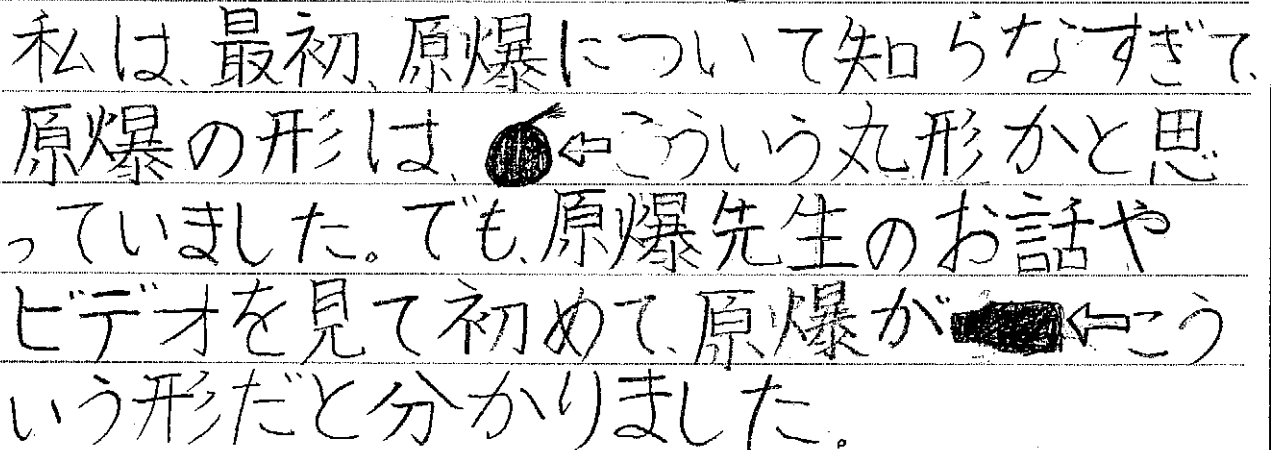 私は、最初、原爆について知らなすぎて、
原爆の形は、⇦こういう丸形かと思
っていました。でも、原爆先生のお話や
ビデオを見て初めて、原爆が⇦こう
いう形だと分かりました。